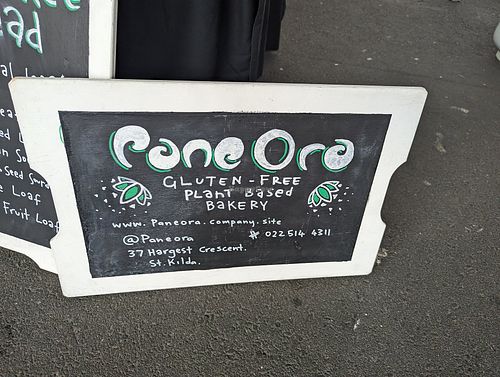 ad
Loaf
Fruit Loaf
Pane Ora
GLUTEN-FREE
PLANT Based
BAKERY
www.Paneora.company.site
@Paneora
# 022 514 4311
37 Hargest Crescent.
St.Kilda.